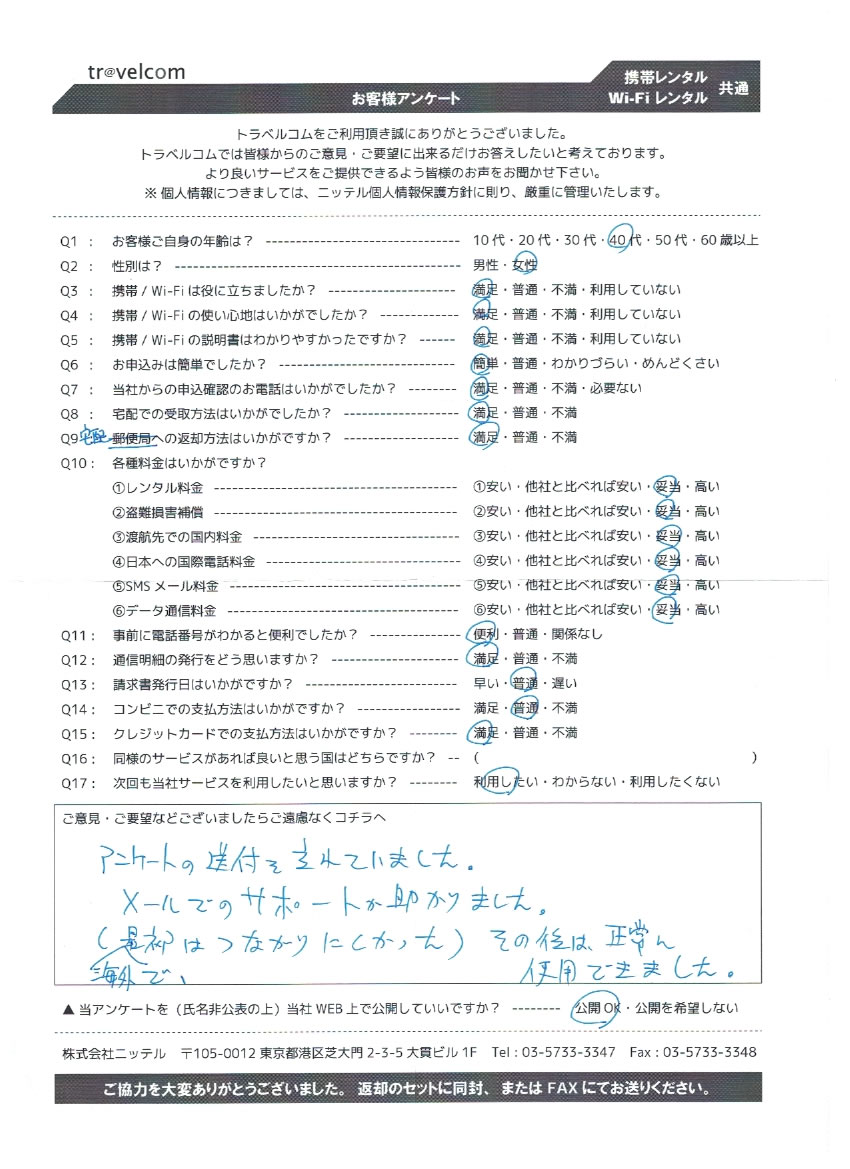 tr@velcom
お客様アンケート
携帯レンタル
Wi-Fi レンタル
共通
トラベルコムをご利用頂き誠にありがとうございました。
トラベルコムでは皆様からのご意見・ご要望に出来るだけお答えしたいと考えております。
より良いサービスをご提供できるよう皆様のお声をお聞かせ下さい。
※ 個人情報につきましては、ニッテル個人情報保護方針に則り、厳重に管理いたします。
Q1 : お客様ご自身の年齢は？ 10代・20代・30代・40代・50代・60歳以上
Q2 : 性別は？ 男性・女性
Q3 : 携帯 / Wi-Fi は役に立ちましたか？ 満足・普通・不満・利用していない
Q4 : 携帯 / Wi-Fi の使い心地はいかがでしたか？ 満足・普通・不満・利用していない
Q5 : 携帯 / Wi-Fi の説明書はわかりやすかったですか？ 満足・普通・不満・利用していない
Q6 : お申込みは簡単でしたか？ 簡単・普通・わかりづらい・めんどくさい
Q7 : 当社からの申込確認のお電話はいかがでしたか？ 満足・普通・不満・必要ない
Q8 : 宅配での受取方法はいかがでしたか？ 満足・普通・不満
Q9 宅配 郵便局への返却方法はいかがですか？ 満足・普通・不満
Q10 : 各種料金はいかがですか？
①レンタル料金 ①安い・他社と比べれば安い・妥当・高い
②盗難損害補償 ②安い・他社と比べれば安い・妥当・高い
③渡航先での国内料金 ③安い・他社と比べれば安い・妥当・高い
④日本への国際電話料金 ④安い・他社と比べれば安い・妥当・高い
⑤SMS メール料金 ⑤安い・他社と比べれば安い・妥当・高い
⑥データ通信料金 ⑥安い・他社と比べれば安い・妥当・高い
Q11 : 事前に電話番号がわかると便利でしたか？ 便利・普通・関係なし
Q12 : 通信明細の発行をどう思いますか？ 満足・普通・不満
Q13 : 請求書発行日はいかがですか？ 早い・普通・遅い
Q14 : コンビニでの支払方法はいかがですか？ 満足・普通・不満
Q15 : クレジットカードでの支払方法はいかがですか？ 満足・普通・不満
Q16 : 同様のサービスがあれば良いと思う国はどちらですか？ ( )
Q17 : 次回も当社サービスを利用したいと思いますか？ 利用したい・わからない・利用したくない
ご意見・ご要望などございましたらご遠慮なくコチラへ
アンケートの送付を忘れていました。
メールでのサポートが助かりました。
(最初はつながりにくかった) その後は、正常に
海外で、 使用できました。
▲ 当アンケートを（氏名非公表の上）当社 WEB 上で公開していいですか？ 公開 OK・公開を希望しない
株式会社ニッテル 〒105-0012 東京都港区芝大門 2-3-5 大貫ビル 1F Tel : 03-5733-3347 Fax : 03-5733-3348
ご協力を大変ありがとうございました。 返却のセットに同封、または FAX にてお送りください。